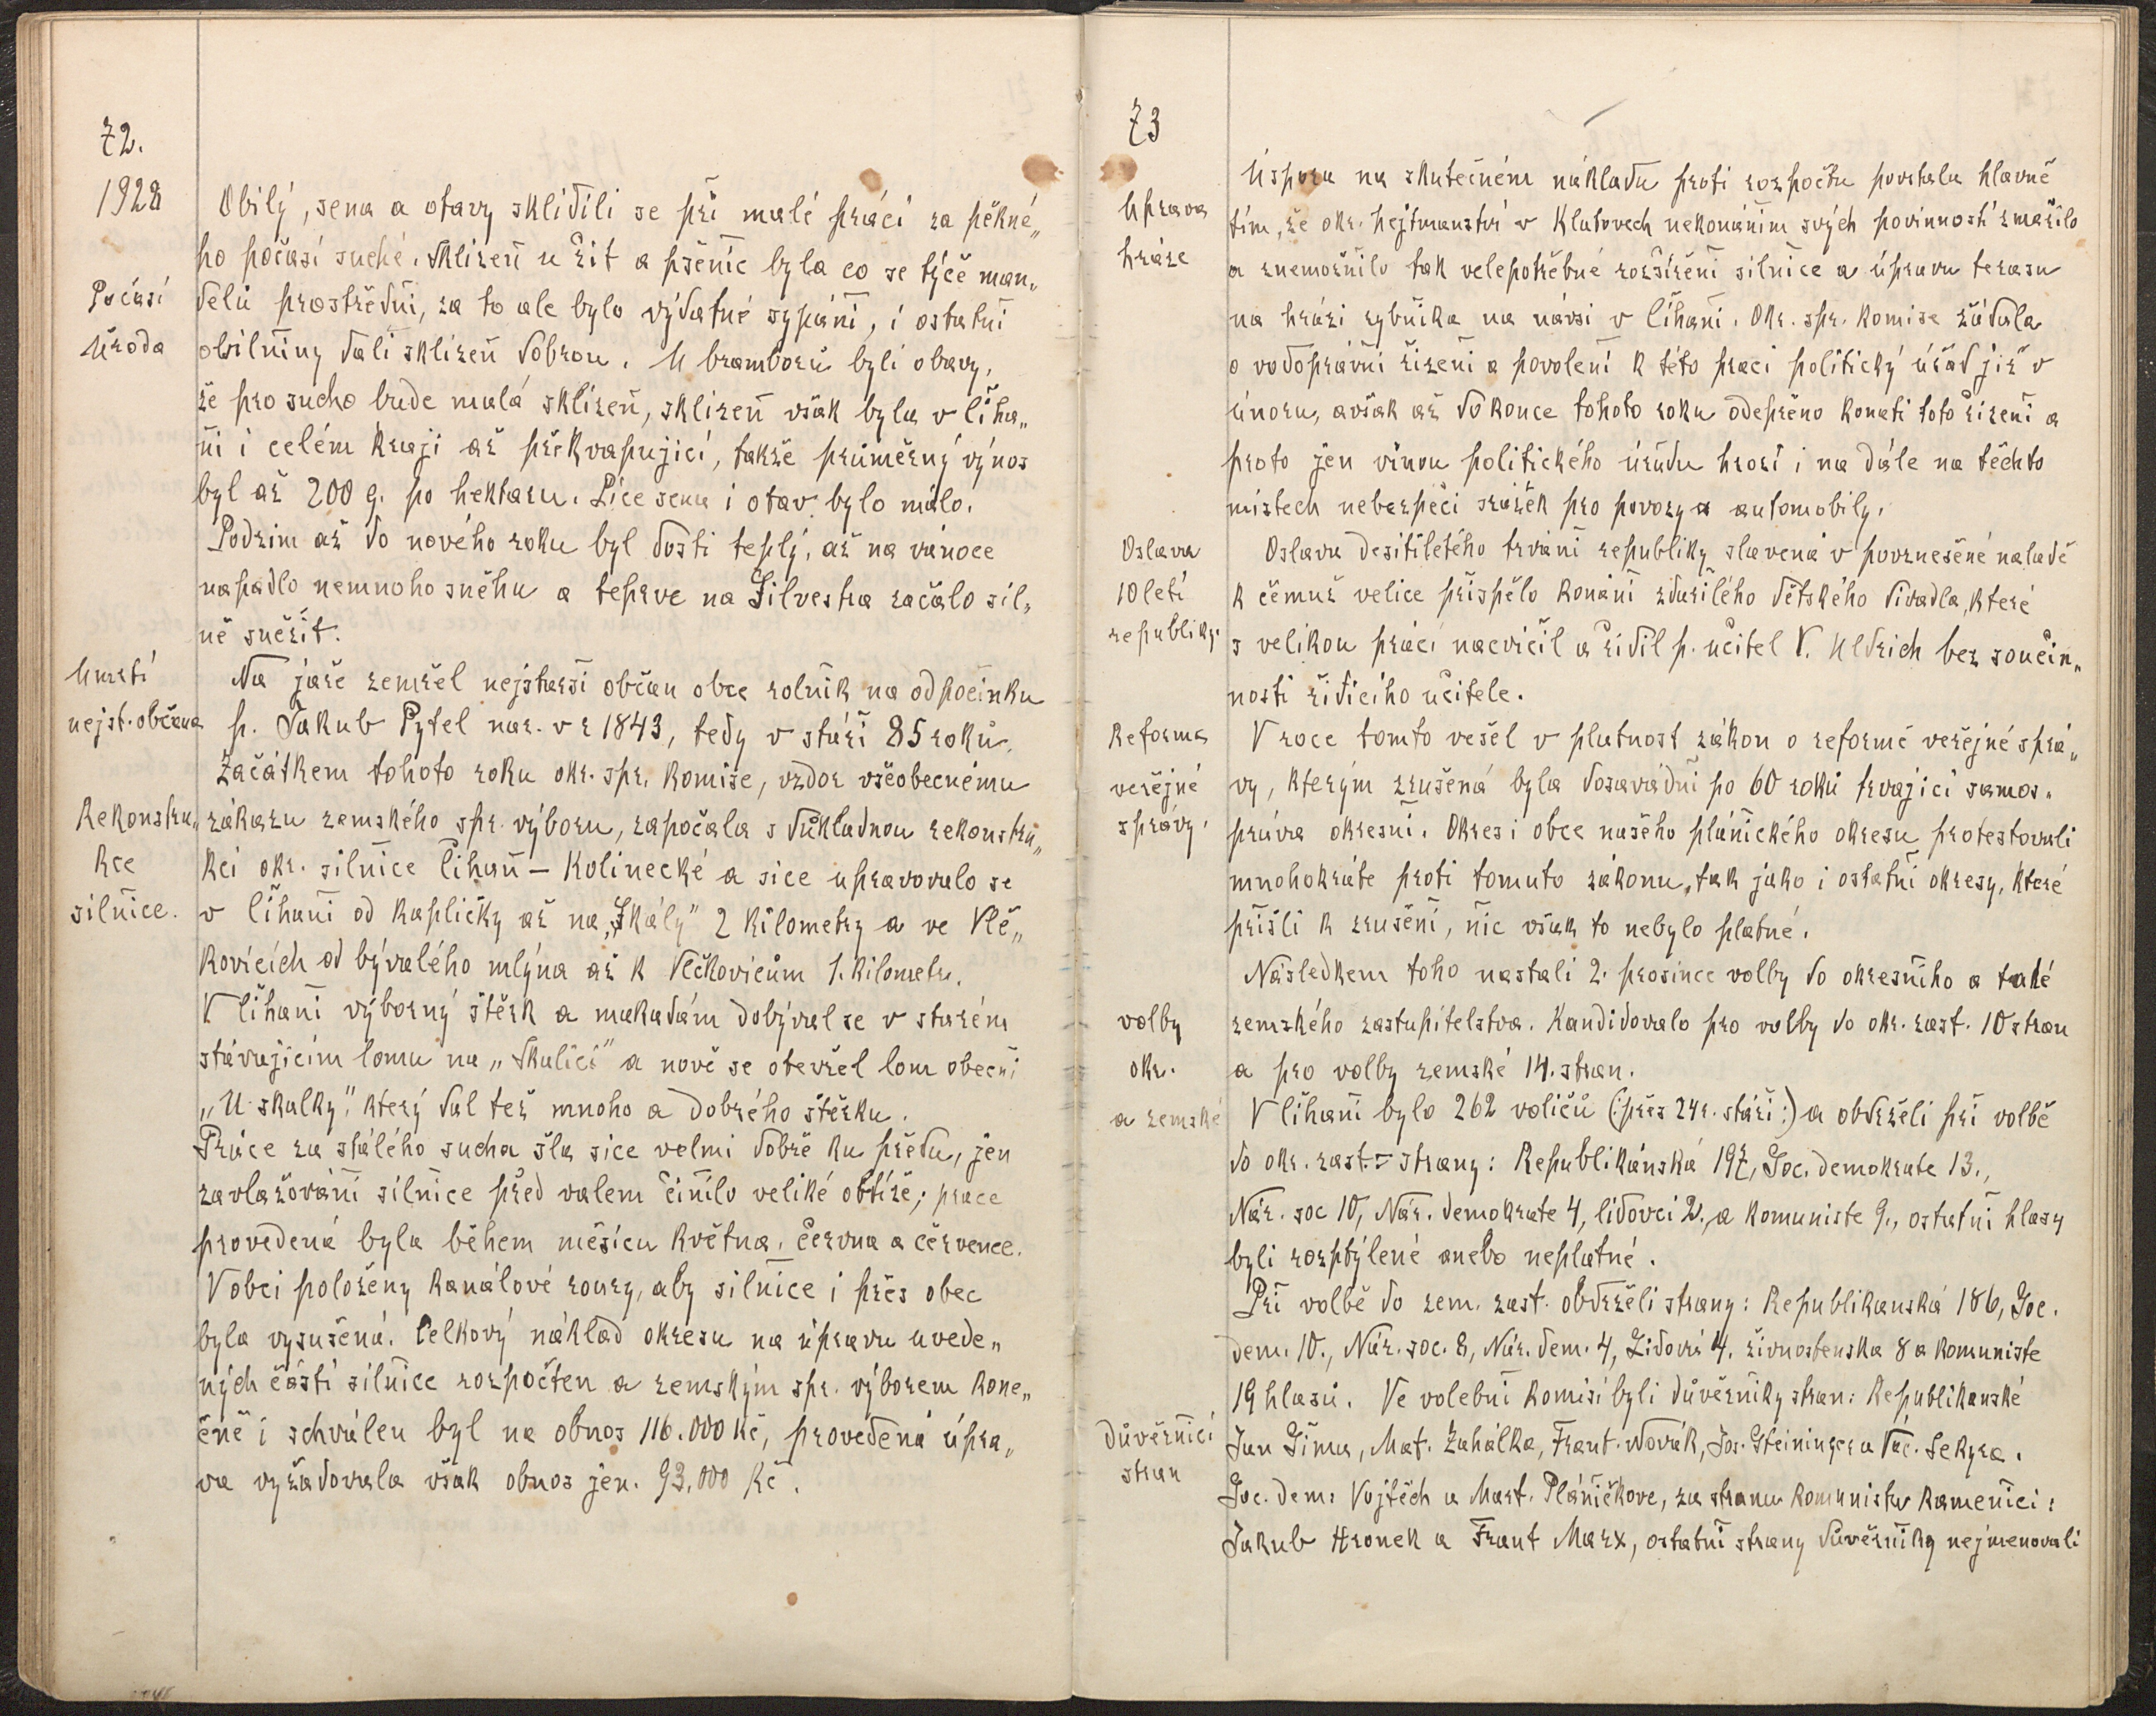 72.
1928
Obilý, sena a otavy sklidili se při malé práci za pěkné„
ho počasí suché. Sklizeň u žit a pšenic byla co se týče man„
Počasí
delů prostřední, za to ale bylo výdatné sypání, i ostatní
Úroda
obilniny dali sklizeň dobrou. U bramborů byli obavy,
že pro sucho bude malá sklizeň, sklizeň však byla v Číha„
ni i celém kraji až překvapující, takže průměrný výnos
byl až 200 q. po hektaru. Píce sena i otav bylo málo.
Podzim až do nového roku byl dosti teplý, až na vánoce
napadlo nemnoho sněhu a teprve na Silvestra začalo sil„
ně sněžit.
Umrtí
nejst. občana
Na jaře zemřel nejstarší občan obce rolník na odpočinku
p. Jakub Pytel nar. v r 1843, tedy v stáří 85 roků.
Začátkem tohoto roku okr. spr. komise, vzdor všeobecnému
Rekonstru„
kce
silnice.
zákazu zemského spr. výboru, započala s důkladnou rekonstru„
kcí okr. silnice Číhaň – Kolinecké a sice upravovalo se
v Číhani od kapličky až na „Skály" 2 kilometry a ve Vlč„
kovicích od bývalého mlýna až k Vlčkovicům 1. kilometr.
V Číhani výborný štěrk a makadám dobýval se v starém
stávajícím lomu na „Skalici" a nově se otevřel lom obecní
„U skalky", který dal též mnoho a dobrého štěrku.
Práce za stálého sucha šla sice velmi dobře ku předu, jen
zavlažování silnice před valem činilo veliké obtíže; práce
provedená byla během měsíců května, června a července.
V obci položeny kanálové roury, aby silnice i přes obec
byla vysušená. Celkový náklad okresu na úpravu uvede„
ných částí silnice rozpočten a zemským spr. výborem kone„
čně i schválen byl na obnos 116.000 Kč, provedená úpra„
va vyžadovala však obnos jen. 93.000 Kč.
73
Úprava
hráze
Úspora na skutečném nákladu proti rozpočtu povstala hlavně
tím, že okr. hejtmanství v Klatovech nekonáním svých povinností zmařilo
a znemožnilo tak velepotřebné rozšíření silnice a úpravu terasu
na hrázi rybníka na návsi v Číhani. Okr. spr. komise žádala
o vodoprávní řízení a povolení k této práci politický úřad již v
únoru, avšak až do konce tohoto roku odepřeno konati toto řízení a
proto jen vinou politického úřadu hrozí i na dále na těchto
místech nebezpečí srážek pro povozy a automobily.
Oslava
10 letí
republiky.
Oslava desítiletého trvání republiky slavená v povznešené náladě
k čemuž velice přispělo konání zdařilého dětského divadla, které
s velikou prácí nacvičil a řídil p. učitel V. Uldrich bez součin„
nosti řídícího učitele.
Reforma
veřejné
správy.
V roce tomto vešel v platnost zákon o reformě veřejné sprá„
vy, kterým zrušená byla dosavádní po 60 roků trvající samos„
práva okresní. Okres i obce našeho plánického okresu protestovali
mnohokráte proti tomuto zákonu, tak jako i ostatní okresy, které
přišli k zrušení, nic však to nebylo platné.
Následkem toho nastali 2. prosince volby do okresního a také
volby
okr.
a zemské
zemského zastupitelstva. Kandidovalo pro volby do okr. zast. 10 stran
a pro volby zemské 14. stran.
V Číhani bylo 262 voličů (: přes 24 r. stáří :) a obdrželi při volbě
do okr. zast. = strany: Republikánská 197, Soc. demokrate 13.,
Nár. soc 10, Nár. demokrate 4, lidovci 2., a komuniste 9., ostatní hlasy
byli rozptýlené anebo neplatné.
Při volbě do zem. zast. obdrželi strany: Republikanská 186, Soc.
dem. 10., Nár. soc. 8, Nár. dem. 4, Lidovci 4. živnostenska 8 a komuniste
19 hlasů. Ve volební komisi byli důvěrniky stran: Republikanské
Důvěrníci
stran
Jan Šima, Mat. Zahálka, Frant. Novák, Jos. Steininger a Vác. Sekyra.
Soc. dem: Vojtěch a Mart. Pláničkove, za stranu komunistu kamenici:
Jakub Hronek a Frant Marx, ostatní strany důvěrníky nejmenovali